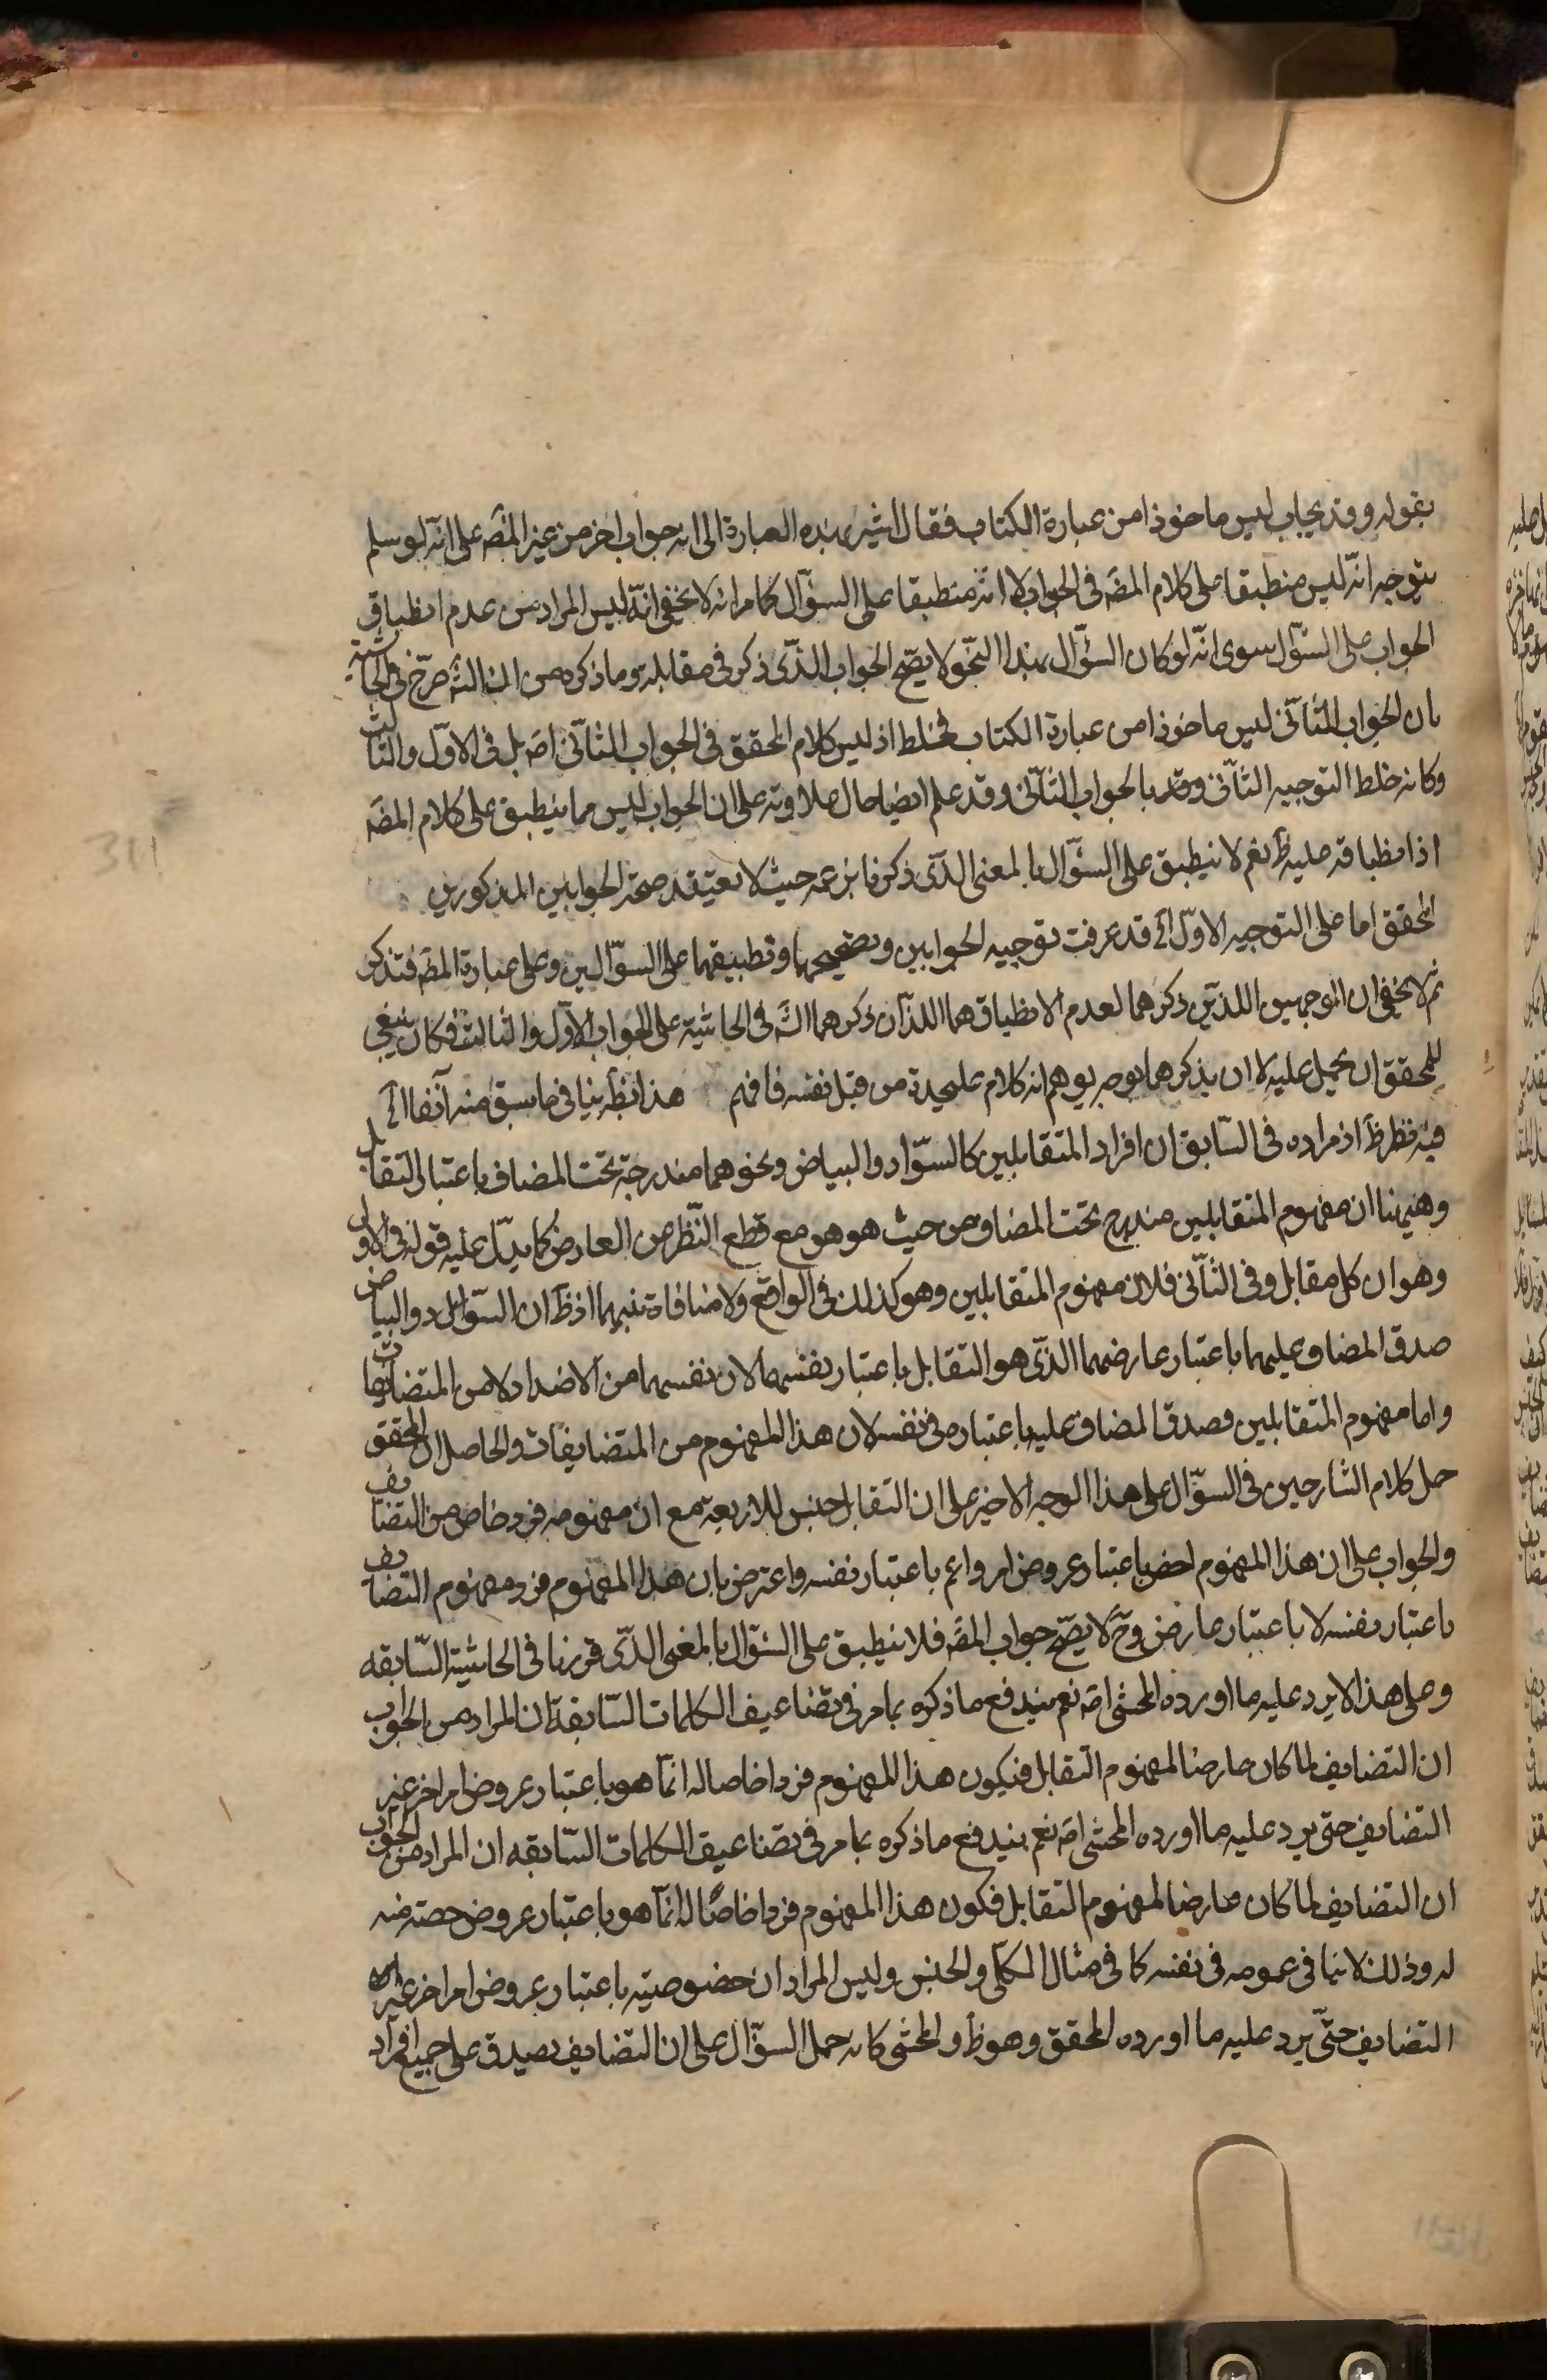 بقوله وقد يجاب ليس ماخوذا من عبارة الكتاب فقال اشير بهذه العبارة الى انه جواب اخر من غير المصَ على انّه لو سلم
بتوجيه انّه ليس منطبقا على كلام المصَ فى الجواب لا انّه منطبقا على السؤال كما مر انه لا يخفى انّه ليس المراد من عدم انطباق
الجواب على السؤال سوى انّه لو كان السؤال بهذا النّحو لا يصّح الجواب الذّى ذكر فى مقابله وما ذكره من ان الشَ صرّح فى الحاشية
بان الجواب الثّانى ليس ماخوذا من عبارة الكتاب فخلط اذ ليس كلام المحقق فى الجواب الثّانى اصَ بل فى الاوّل والثّالث
وكانه خلط التوجيه الثّانى وقد بالجواب الثّانى وقد علم ايضا حال علاوته على ان الجواب ليس مما ينطبق على كلام المصَ
اذ انطباقه عليه ظَ نعم لا ينطبق على السؤال بالمعنى الذّى ذكرنا بزعمه حيث لا يعتقد صحة الجوابين المذكورين
المحقق اما على التوجيه الاوّل الَخ قد عرفت توجيه الجوابين وتصحيحهما وتطبيقهما على السؤالين وعلى عبارة المصَ فتذكر
ثم لا يخفى ان الوجهين اللذين ذكرهما لعدم الانطباق هما اللذان ذكرهما الشَ فى الحاشية على الجواب الاوّل والثالث فكان ينبغى
للمحقق ان يحيل عليه لا ان يذكرهما بوجه يوهم انه كلام عليحدة من قبل نفسه فافهم هذا نظر بنا فى ما سبق منه آنفا الَخ
فيه نظر ظَ اذ مراده فى السّابق ان افراد المتقابلين كالسّواد والبياض ونحوهما مندرجة تحت المضاف باعتبار التقابل
وهيهنا ان مفهوم المتقابلين مندرج تحت المضاف من حيث هو هو مع قطع النّظر من العارض كما يدلّ عليه قوله فى الاول
وهو ان كل مقابل وفى الثّانى فلان مفهوم المتقابلين وهو كذلك فى الواقع ولا منافاة بينهما اذ ظَ ان السّواد والبياض
صدق المضاف عليهما باعتبار عارضهما الذّى هو التقابل باعتبار نفسهما لان نفسهما من الاضداد لا من المتضايفات
واما مفهوم المتقابلين فصدق المضاف عليه باعتباره فى نفسه لان هذا المفهوم من المتضايفات والحاصل ان المحقق
حمل كلام الشارحين فى السؤال على هذا الوجه الاخير على ان التقابل جنس للاربعة مع انّ مفهومه فرد خاص من التضايف
والجواب على ان هذا المفهوم اخص باعتبار عروض امر واعم باعتبار نفسه واعترض بان هذا المفهوم فرد مفهوم التضايف
باعتبار نفسه لا باعتبار عارض وحَ لا يصّح جواب المصَ فلا ينطبق على السؤال بالمغنى الذّى قررنا فى الحاشية السّابقه
وعلى هذا لا يرد عليه ما اورده المحشى اصَ نعم يندفع ما ذكره بما مر فى تضاعيف الكلمات السّابقة ان المراد من الجواب
ان التضايف لما كان عارضا لمفهوم التقابل فيكون هذا المفهوم فردا خاصا له انّما هو باعتبار عروض امر اخر غير
التضايف حتى يرد عليه ما اورده المحشى اصَ نعم يندفع ما ذكره بما مر فى تضاعيف الكلمات السّابقه ان المراد من الجواب
ان التضايف لما كان عارضا لمفهوم التقابل فكون هذا المفهوم فردا خاصّا له انّما هو باعتبار عروض حصته منه
له وذلك لا ينافى عمومه فى نفسه كما فى مثال الكلّى والجنس وليس المراد ان خصوصيته باعتبار عروض امر اخر غير
التضايف حتّى يرد عليه ما اورده المحقق وهو ظَ والمحشى كانه حمل السؤال على ان التضايف يصدق على جميع افراد